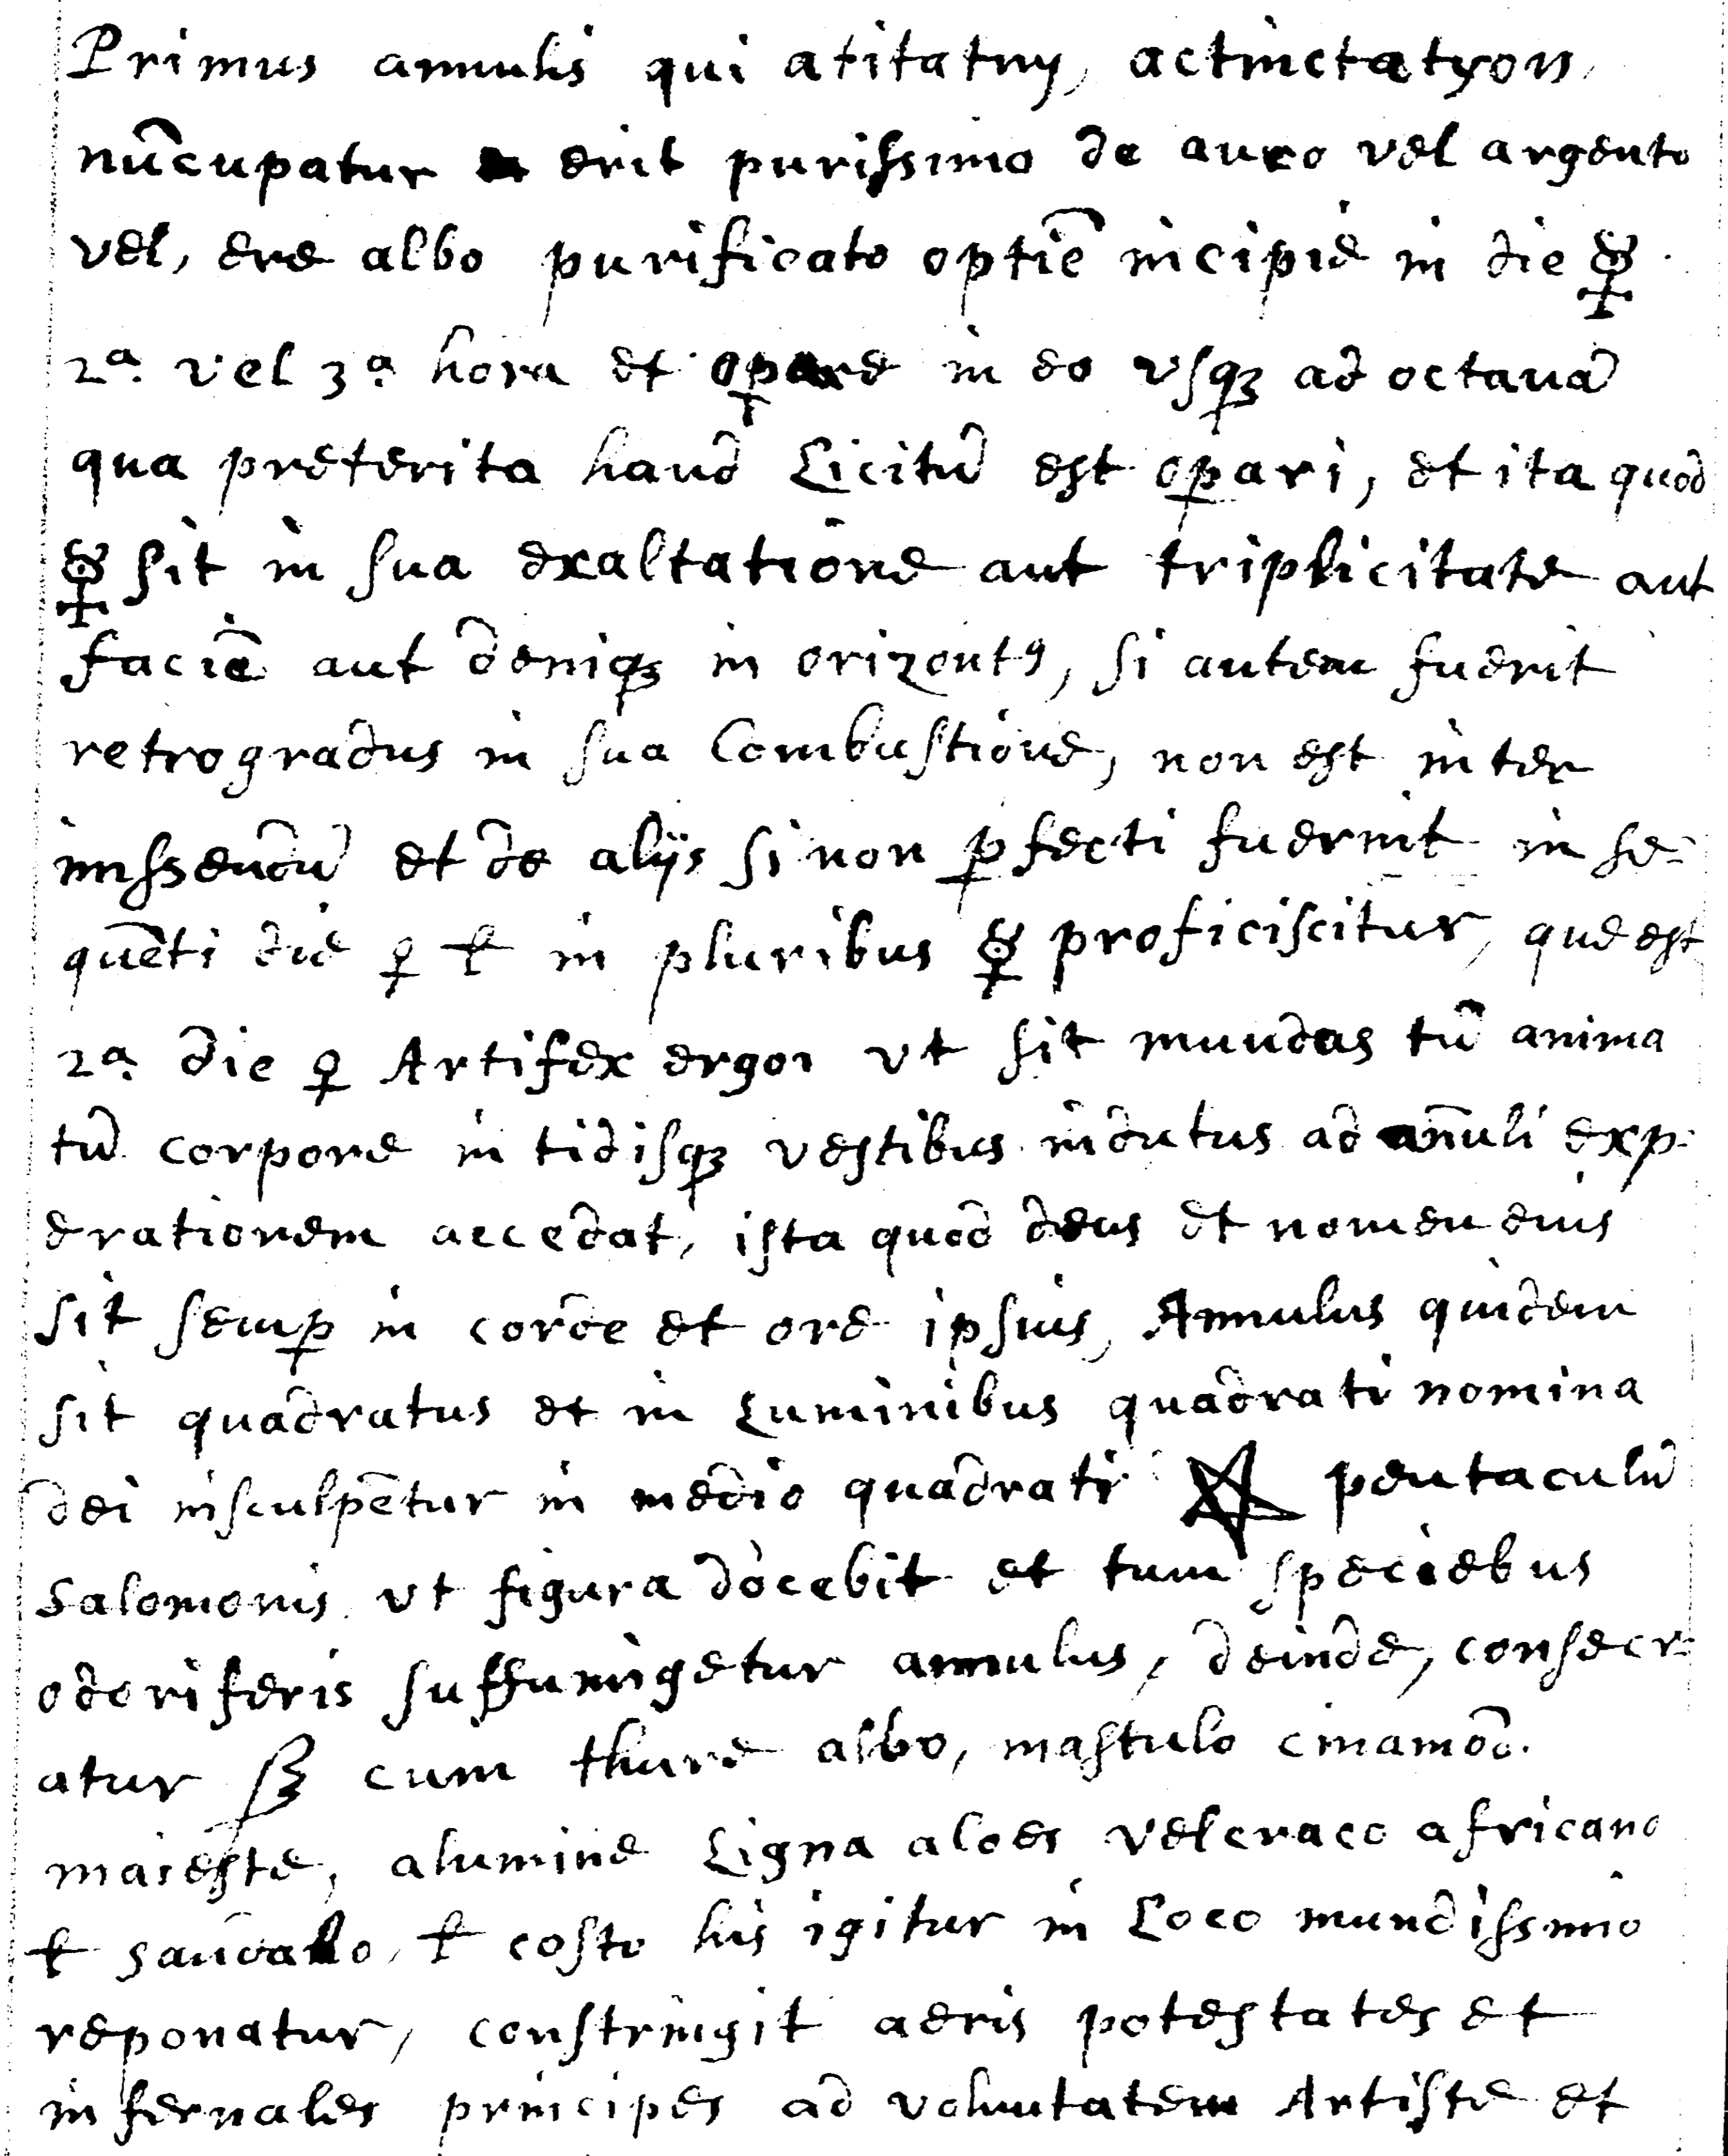 Primus annulis qui atitatny, actinctatyon,
nūcupatur erit purissimo de auro vel argento
vel, ere albo purificato optiē incipie in die ☿
2ª. vel 3ª hora et opare in eo usqꝫ ad octauā
qua preterita haud Licitū est opari, et ita quod
☿ sit in sua exaltatione aut triplicitate aut
faciē aut deniqꝫ in orizontꝯ, si autem fuerit
retrogradus in sua Combustione, non est inter
missendū et de alijs si non pfecti fuerint in se-
quēti die ♀ ł in pluribus ☿ proficiscitur, que est
2ª. die ♀ Artifex ergo ut sit mundas tū anima
tū corpore in tidisqꝫ vestibus indutus ad anūli exp-
erationem accedat, ista quod deus et nomen eius
sit semp in corde et ore ipsius, Annulus quidem
sit quadratus et in Luminibus quadrati nomina
dei insculpētur in medio quadrati ⛤ pentaculū
Salomonis ut figura docebit et tum speciebus
odoriferis suffumigetur annulus, deinde, consecr-
atur cum thure albo, mastulo cinamōo.
maieste, alumine Ligna aloes vel croco africano
ł sandalo, ł costo his igitur in Loco mundissimo
reponatur, constringit aeris potestates et
infernales principes ad voluntatem Artiste et